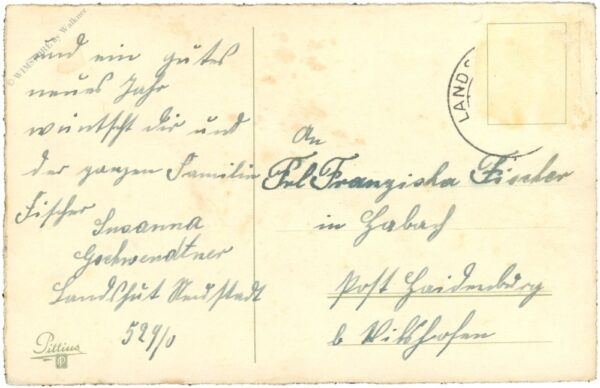 und ein gutes
neues Jahr
wünscht dir und
der ganzen Familie
Fischer
Susanna
Gschwendtner
Landshut Neustadt
529/0
Pittius
LAND
An
Frl Franziska Fischer
in Habach
Post Haidenburg
b Vilshofen
© WIMSTORE by Walkner